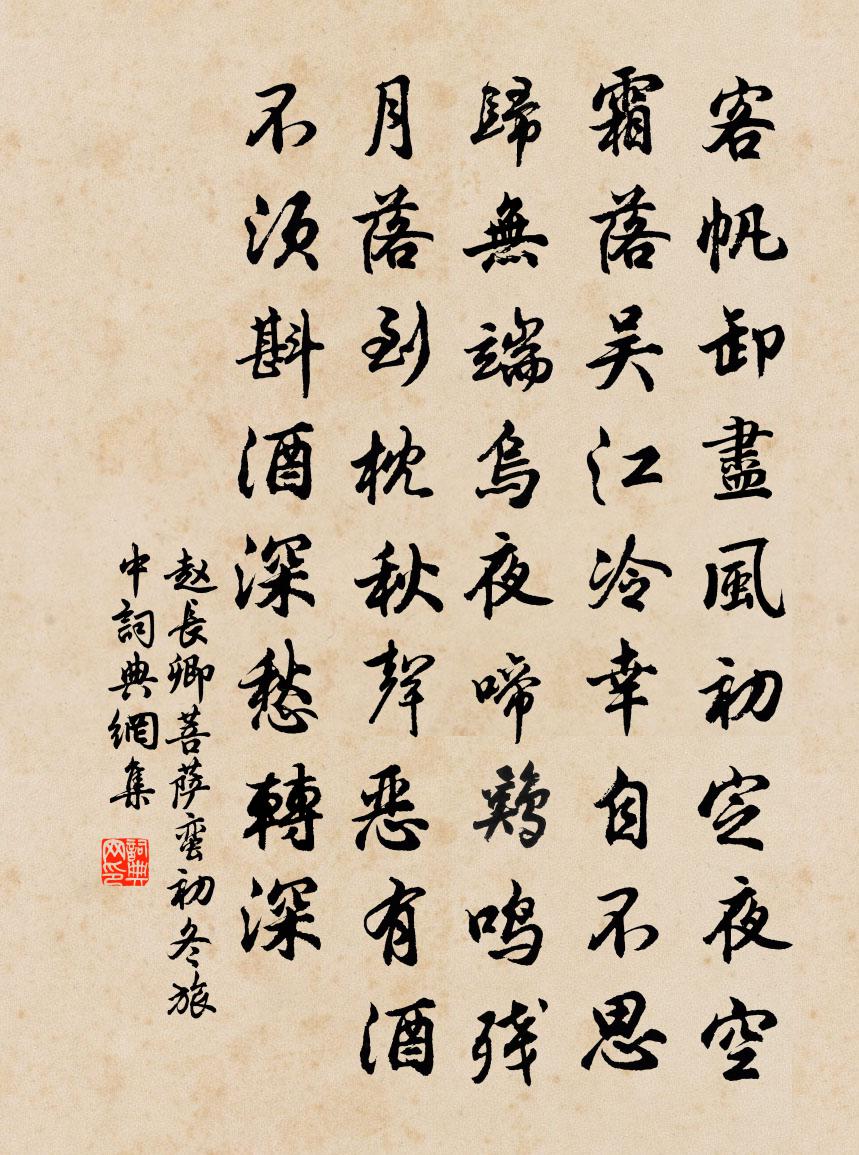 客帆卸盡風初定夜空
霜落吳江冷幸自不思
歸無端烏夜啼鷄鳴残
月落到枕秋聲惡有酒
不須斟酒深愁轉深
赵長卿菩萨蛮初冬旅
中詞典網集
詞典
网印